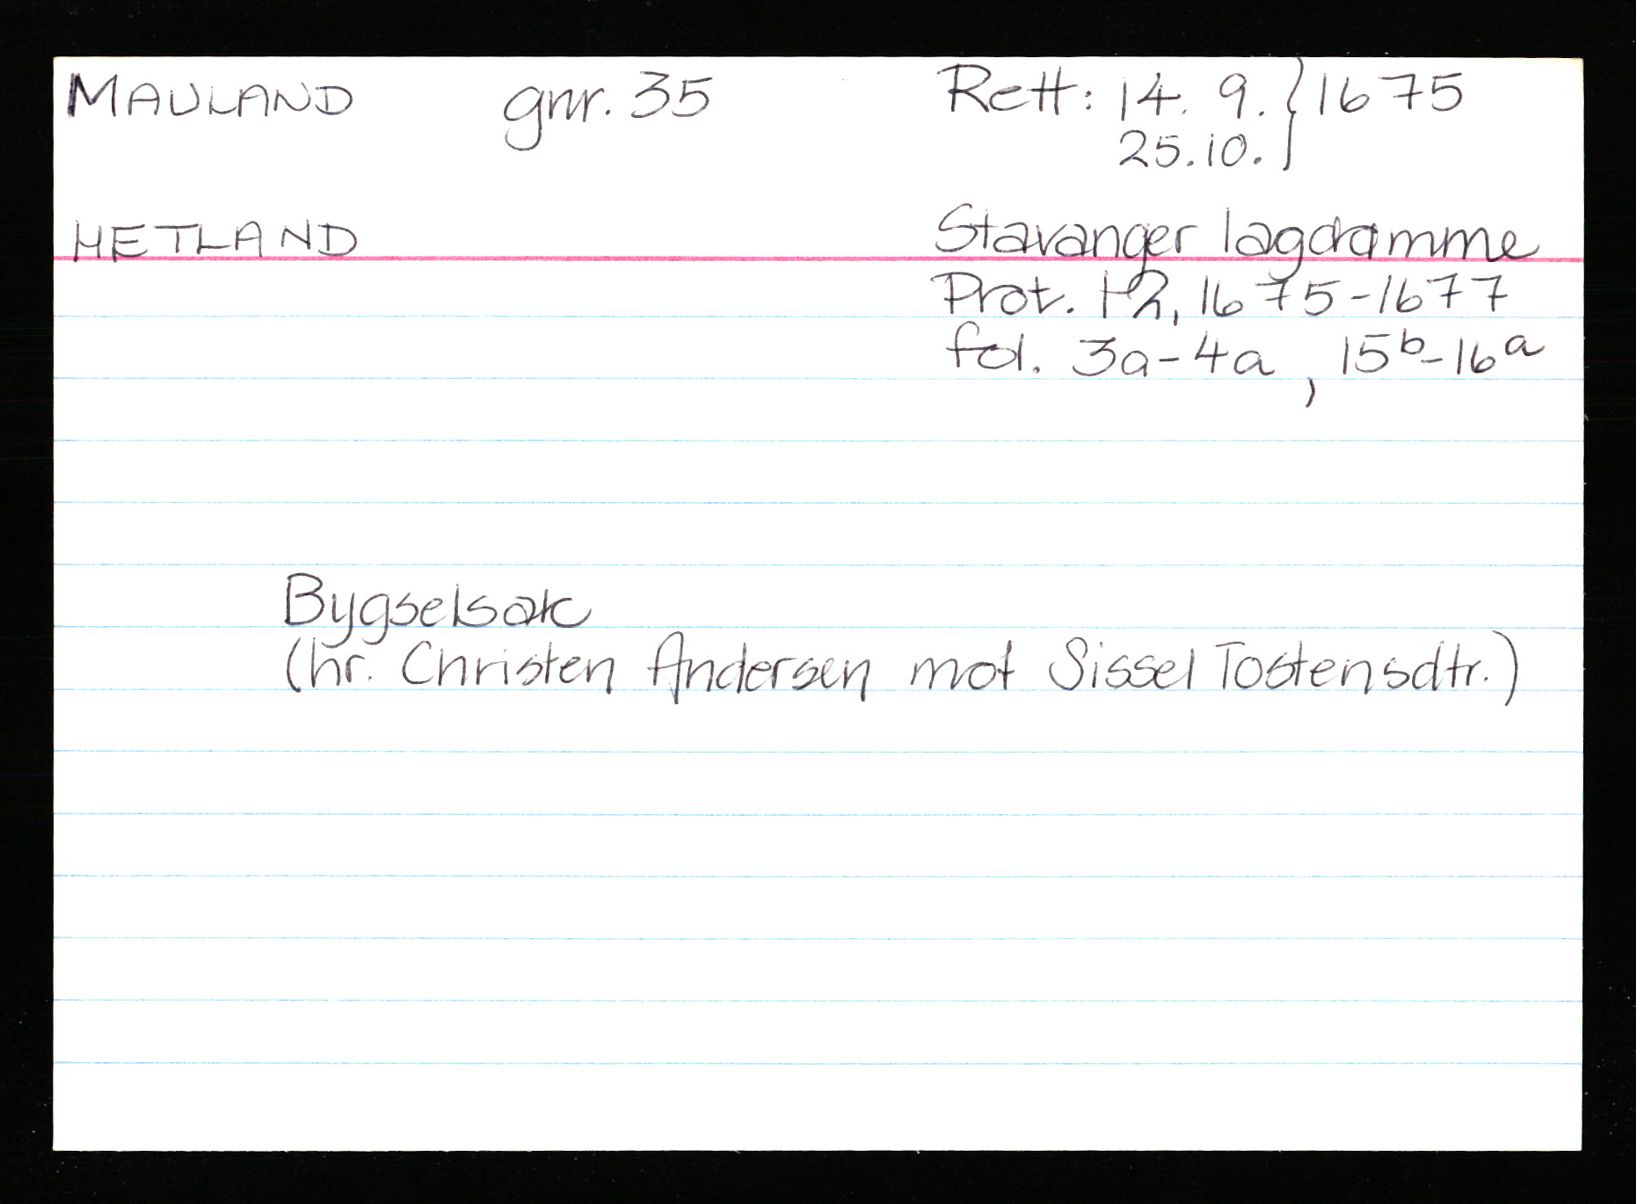 MAULAND gnr. 35 Rett: 14. 9. } 1675
25.10.
HETLAND Stavanger lagdømme
Prot. 1-2, 1675-1677
fol. 3a-4a, 15b-16a
Bygselsak
(hr. Christen Andersen mot Sissel Tostensdtr.)